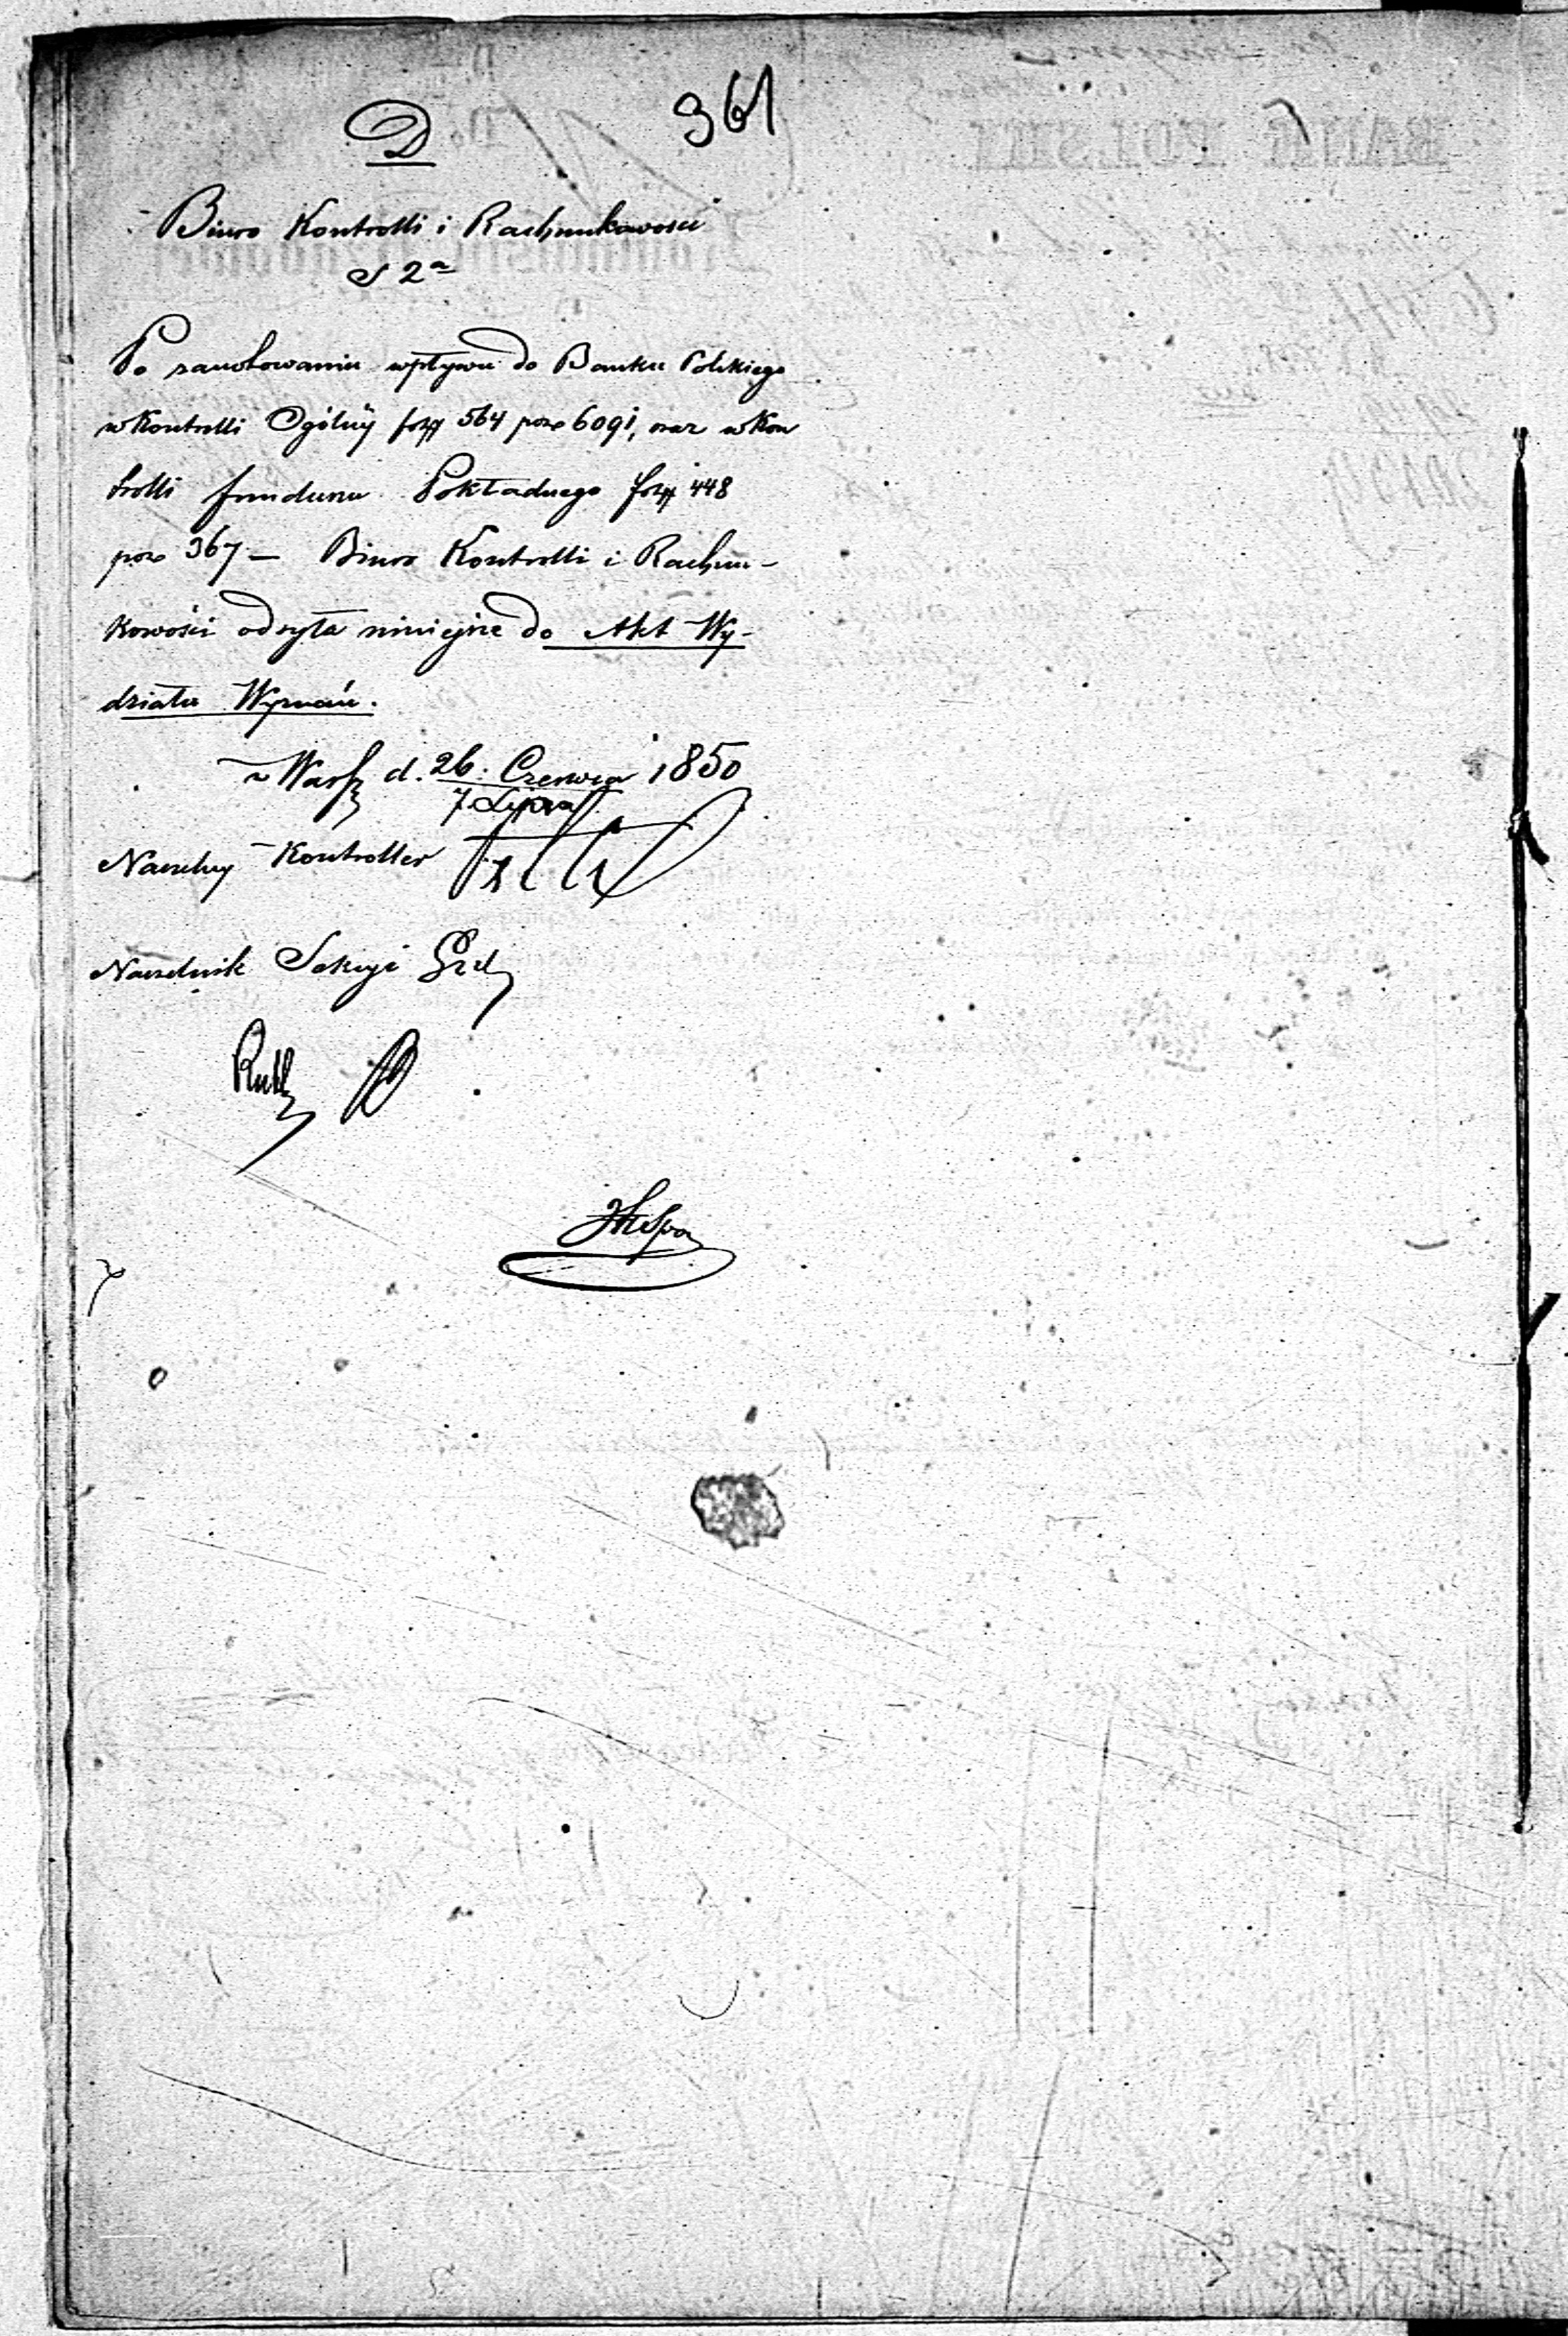 D
361
Biuro Kontrolli i Rachunkowości
S 2ª
Po zanotowaniu wpływu do Banku Polskiego
w Kontrolli Ogólnÿ 564 poz 6091, oraz w Kon
trolli funduszu Pokładnego 448
poz 367 — Biuro Kontrolli i Rachun-
kowości odsyła niniejsze do Akt Wy-
działu Wyznań.
w Warsz d. 26. Czerwca 1850
7 Lipca
Naczelny Kontroller
Naczelnik Sekcyi